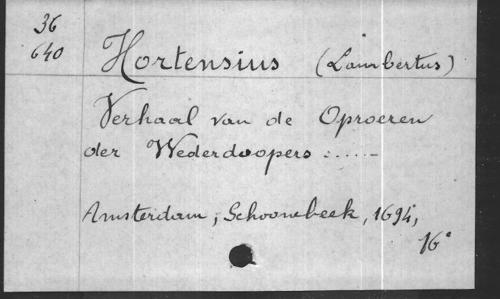 36
640
Hortensius (Lambertus)
Verhaal van de Oproeren
der Wederdoopers :.....
Amsterdam, Schoonebeek, 1694,
16°